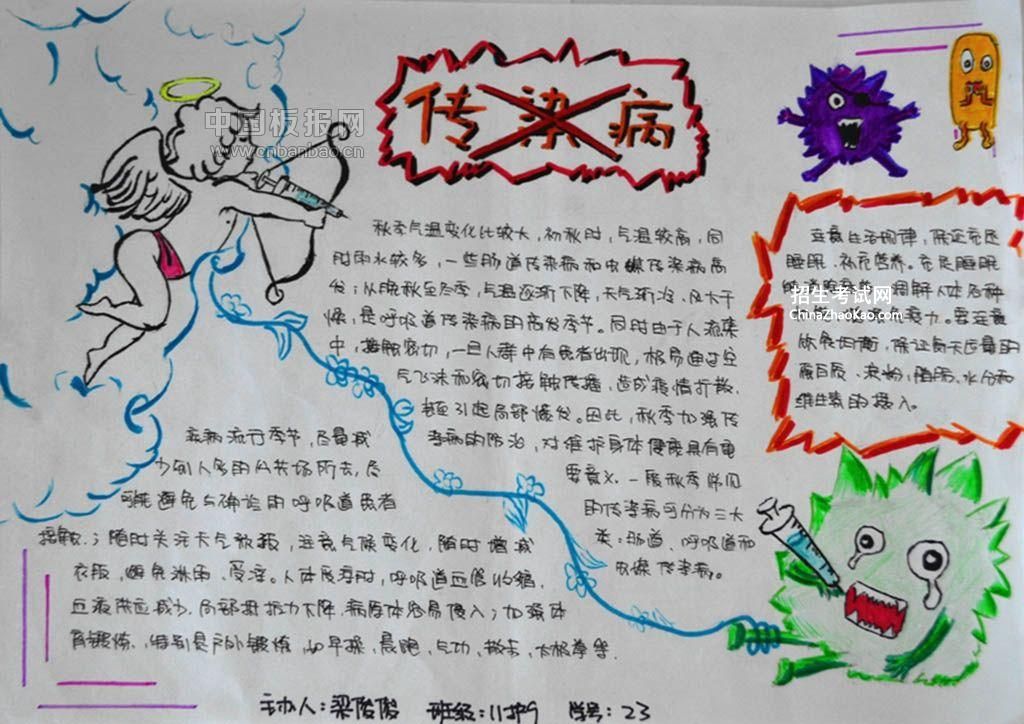 传染病
中国板报网
www.cnbanbao.cn
秋季气温变化比较大，初秋时，气温较高，同
时雨水较多，一些肠道传染病和虫媒传染病高
发；从晚秋至冬季，气温逐渐下降，天气渐冷、风大干
燥，是呼吸道传染病的高发季节。同时由于人流集
中，接触密切，一旦人群中有患者出现，极易通过空
气飞沫和密切接触传播，造成疫情扩散，
甚至引起局部爆发。因此，秋季加强传
染病的防治，对维护身体健康具有重
要意义。一般秋季常见
的传染病可分为三大
类：肠道、呼吸道和
虫媒传染病。
注意生活规律，保证充足
睡眠、补充营养。充足睡眠
调解人体各种
力。要注意
饮食均衡，保证每天适量的
蛋白质、淀粉，脂肪、水分和
维生素的摄入。
招生考试网
ChinaZhaoKao.com
疾病流行季节，尽量减
少到人多的公共场所去，尽
可能避免与确诊的呼吸道患者
接触；随时关注天气预报，注意气候变化，随时增减
衣服，避免淋雨、受凉。人体受凉时，呼吸道血管收缩，
血液供应减少，局部抵抗力下降，病原体容易侵入；加强体
育锻炼，特别是户外锻炼，如早操，晨跑，气功，散步，太极拳等．
主办人：梁俊俊 班级：11护9 学号：23